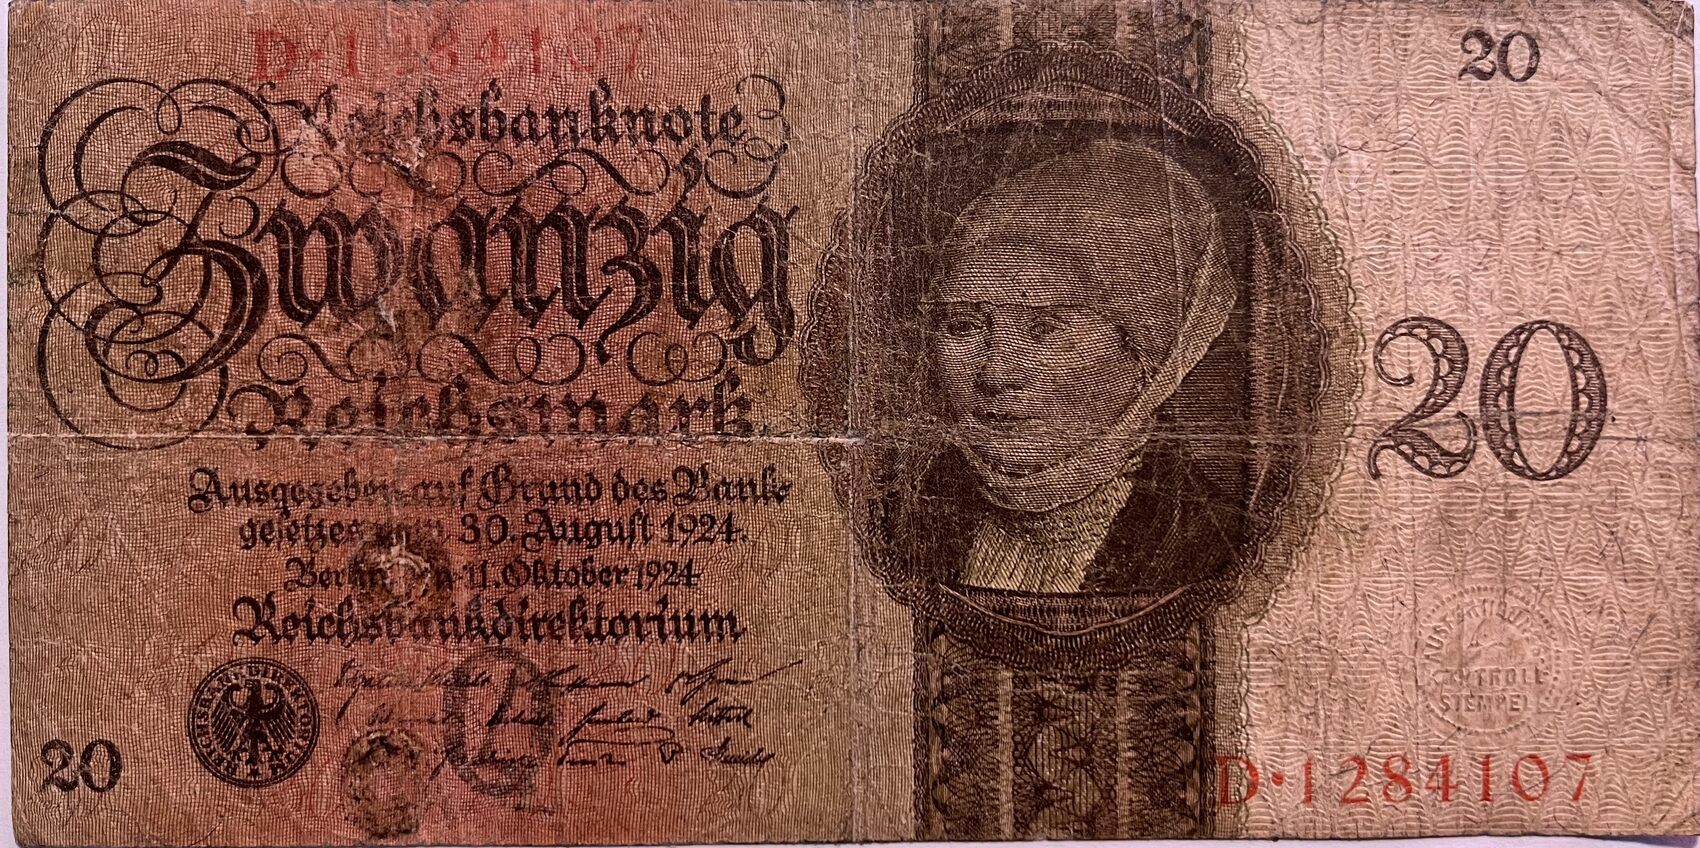 D·1284107
20
Reichsbanknote
Zwanzig
Reichsmark
20
Ausgegeben auf Grund des Bank-
gesetzes vom 30. August 1924.
Berlin, den 11. Oktober 1924
Reichsbankdirektorium
REICHSBANKDIREKTORIUM
Q
KONTROLL-
STEMPEL
20
D·1284107